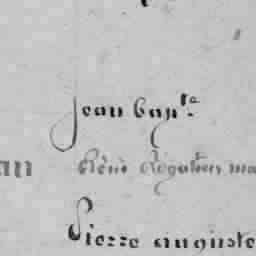 Jean bapte.
an René
Pierre auguste